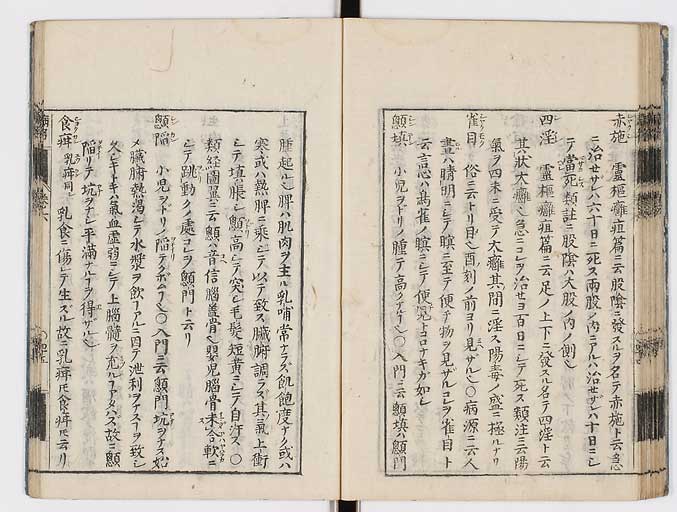 赤施 靈樞癰疽篇ニ云股陰ニ發スルヲ名テ赤施ト云急
ニ治セザレハ六十日ニ死ス兩股ノ内ニアルハ治セザレハ十日ニシ
テ當死類註ニ股陰ハ大股ノ内ノ側也
四淫 靈樞癰疽篇ニ云足ノ上下ニ發スル名テ四淫ト云
其狀大癰也急ニコレヲ治セヨ百日ニシテ死ス類注ニ云陽
氣ヲ四末ニ受テ大癰其間ニ淫ス陽毒ノ盛ニ極ルナリ
雀目 俗ニ云トリ目也酉刻ノ前ヨリ見ザル也〇病源ニ云人
晝ハ睛明ニシテ瞑ニ至テ便チ物ヲ見ザルコレヲ雀目ト
云言心ハ鳥雀ノ瞑ニシテ便見トコロナキガ如シ
顖填 小児ヲドリノ腫テ高クナル也〇入門ニ云顖填ハ顖門
腫起ル也脾ハ肌肉ヲ主ル乳哺常ナラズ飢飽度ナク或ハ
寒或ハ熱脾ニ乘シテ以テ致ス臓腑調ラズ其氣上衝
シテ填ハ脹シ顖高シテ突シ毛髮短黄ニシテ自汗ス〇
類経圖翼ニ云顖ハ音信腦蓋骨也嬰児腦骨未合軟ニ
シテ跳動クノ處コレヲ顖門ト云リ
顖陷 小児ヲドリノ陷テクボム也〇入門ニ云顖門坑ヲナス始
メ臓腑熱渇シテ水漿ヲ飲コアルニ因テ泄利ヲナスヲ致シ
久シキトキハ氣血虚弱ニシテ上腦髓ヲ充ルコアタハズ故ニ顖
陷リテ坑ヲナシ平滿ナルヿヲ得ザル也
食疳 乳疳同 乳食ニ傷レテ生ズル故ニ乳疳モ食疳モ云リ